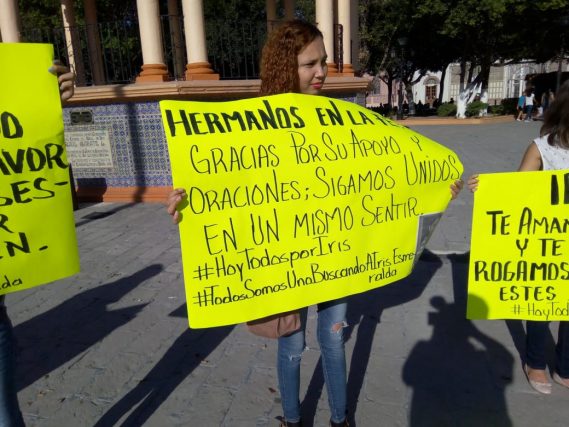 O
AVOR
ES-
R
EN.-
alda
HERMANOS EN LA
GRACIAS POR SU APOYO Y
ORACIONES; SIGAMOS UNIDOS
EN UN MISMO SENTIR
#HoyTodosporIris
#TodosSomosUnoBuscandoAIrisEsme
ralda
TE AMA
Y TE
ROGAMOS
ESTES
#HoyTod